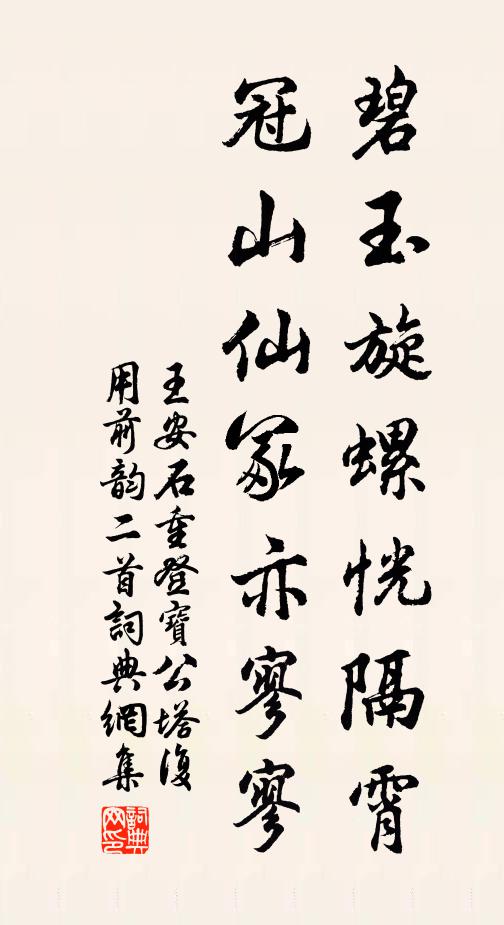 碧玉旋螺恍隔霄
冠山仙冢亦寥寥
王安石重登寶公塔復
用前韵二首詞典網集
詞典網印